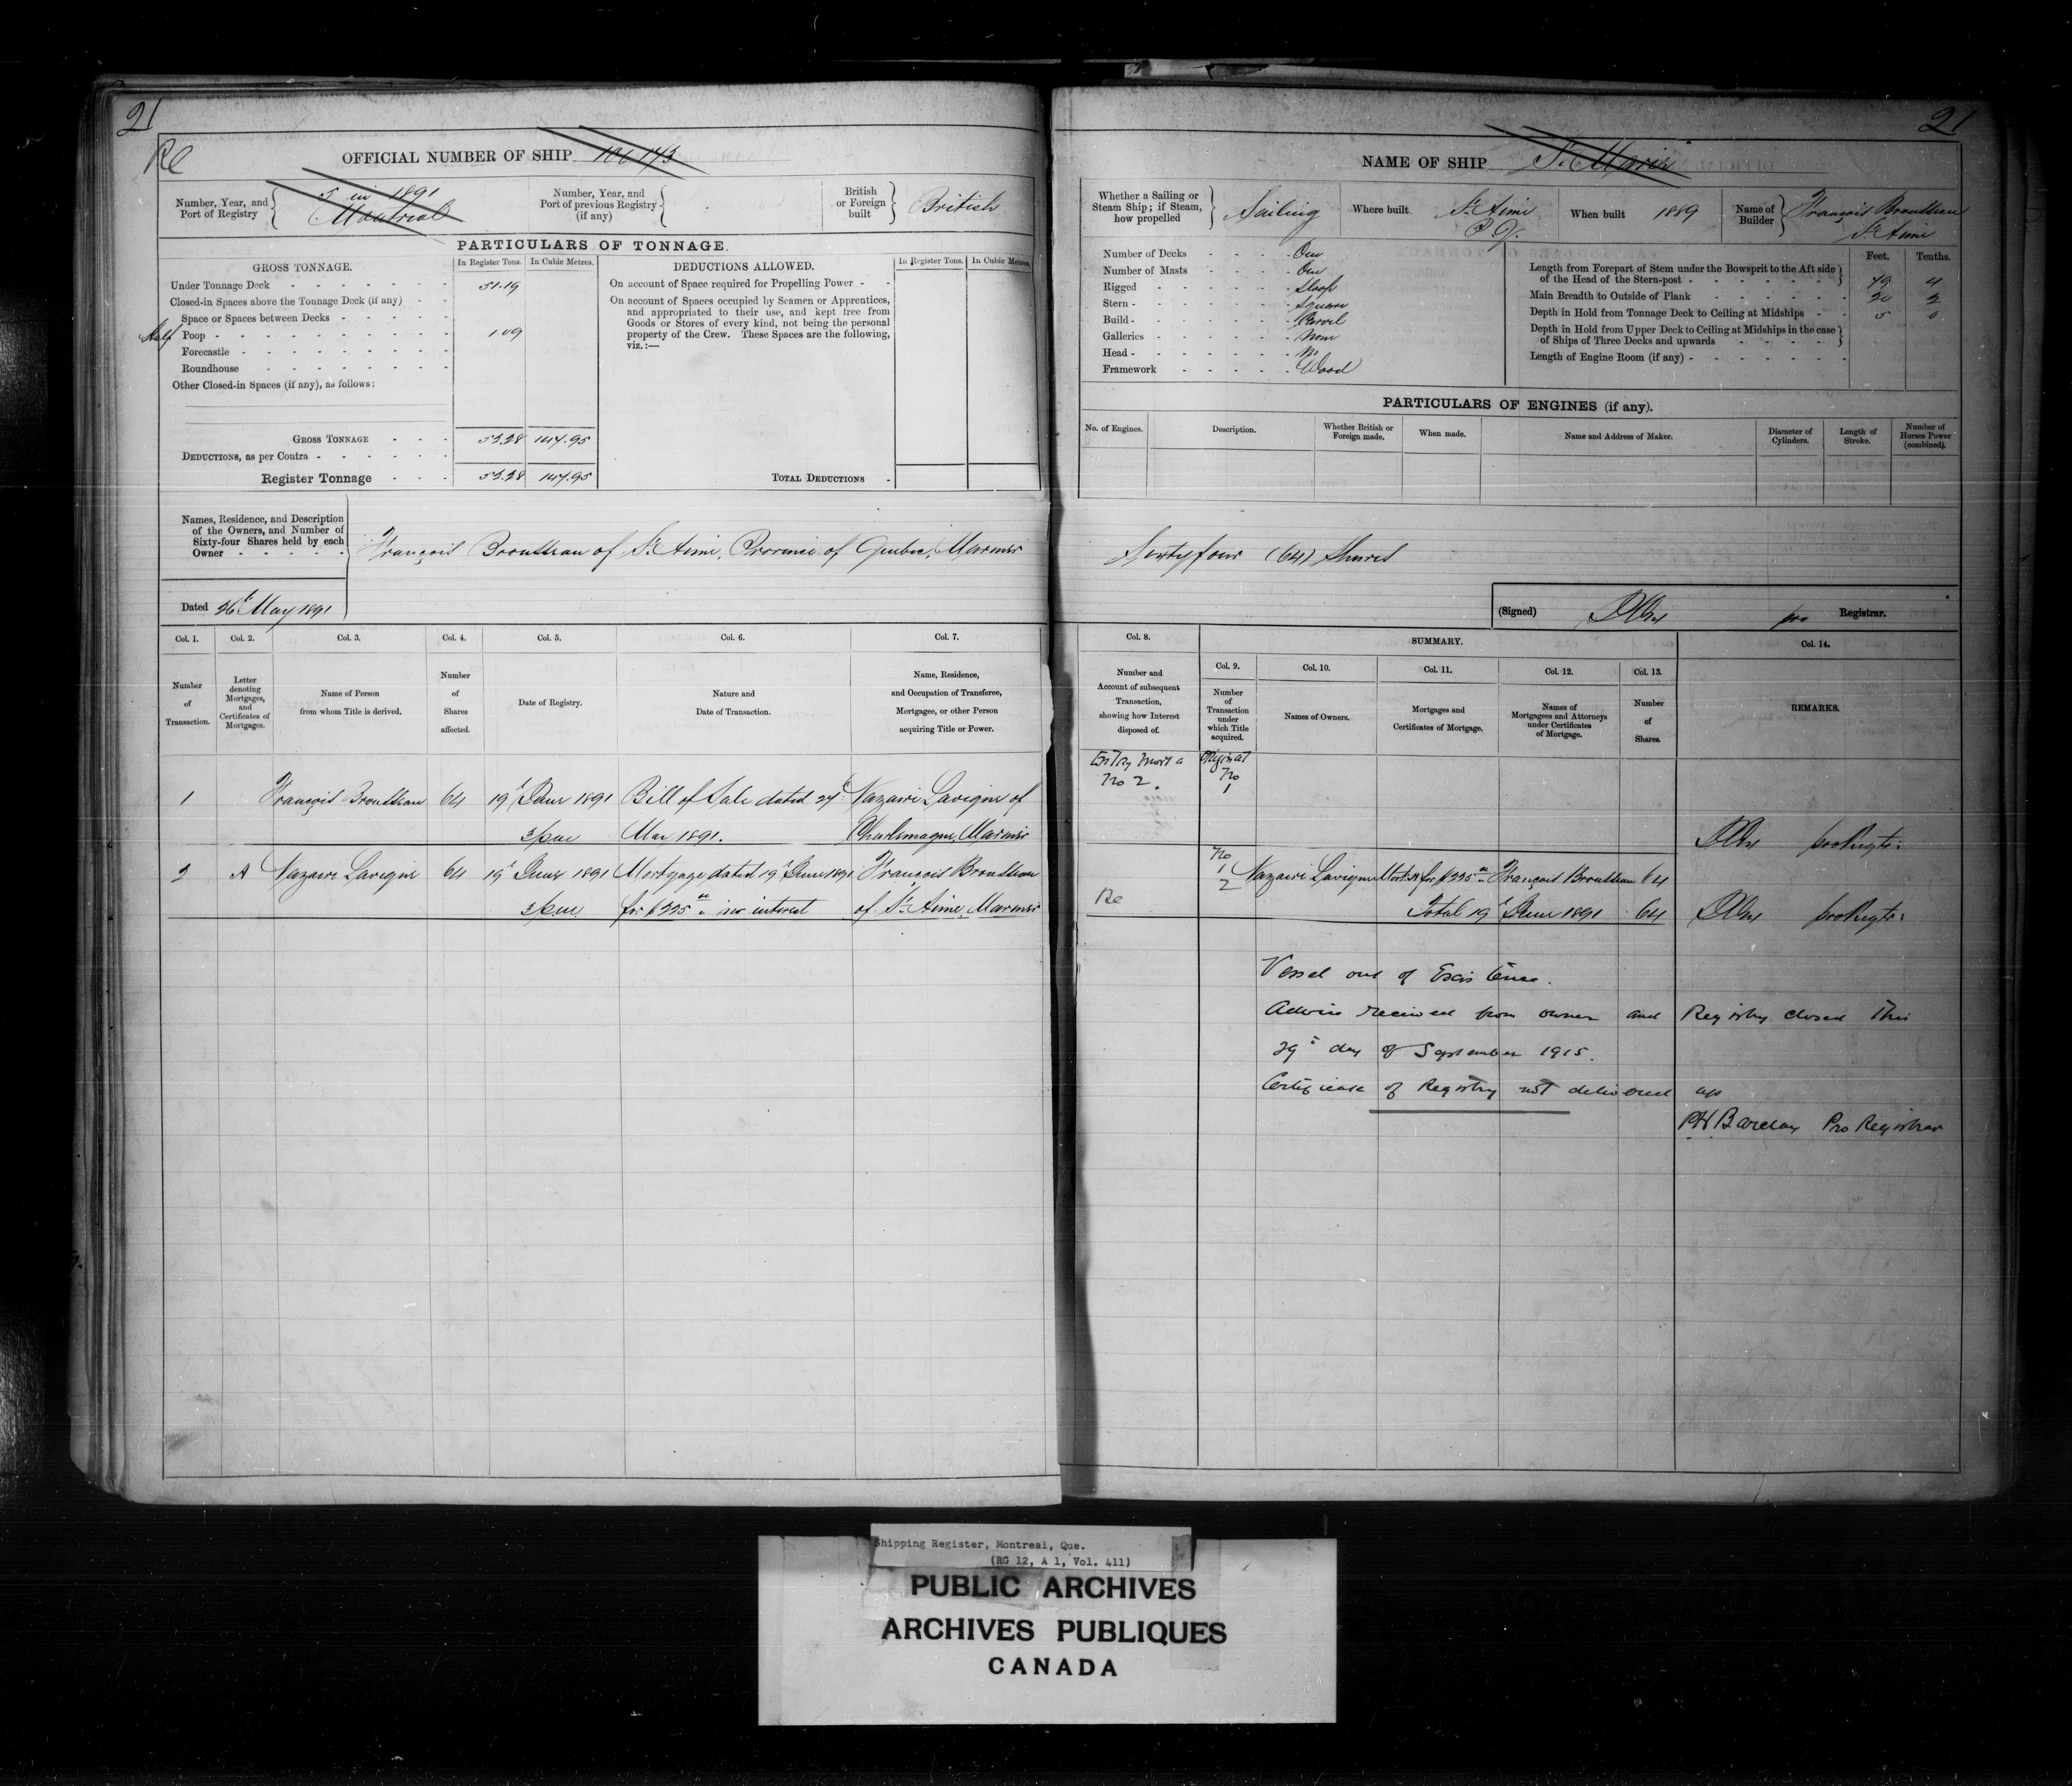 21
21
Re
OFFICIAL NUMBER OF SHIP
Number, Year, and
Port of Registry
5 in 1891
Montreal
Number, Year, and
Port of previous Registry
(if any)
British
or Foreign
built
British
PARTICULARS OF TONNAGE.
GROSS TONNAGE.
In Register Tons.
In Cubic Metres.
Under Tonnage Deck 51.19
Closed-in Spaces above the Tonnage Deck (if any)
Space or Spaces between Decks
Half Poop 1.09
Forecastle
Roundhouse
Other Closed-in Spaces (if any), as follows:
GROSS TONNAGE 52.28 147.95
DEDUCTIONS, as per Contra
Register Tonnage 52.28 147.95
DEDUCTIONS ALLOWED.
In Register Tons.
In Cubic Metres.
On account of Space required for Propelling Power
On account of Spaces occupied by Seamen or Apprentices,
and appropriated to their use, and kept free from
Goods or Stores of every kind, not being the personal
property of the Crew. These Spaces are the following,
viz.:—
TOTAL DEDUCTIONS
NAME OF SHIP
Whether a Sailing or
Steam Ship; if Steam,
how propelled
Sailing
Where built
St. Aimé
P.Q.
When built 1889
Name of
Builder
François Brousseau
St. Aimé
Number of Decks One
Number of Masts One
Rigged Sloop
Stern Square
Build Carvel
Galleries None
Head No
Framework Wood
Feet. Tenths.
Length from Forepart of Stem under the Bowsprit to the Aft side
of the Head of the Stern-post 4
Main Breadth to Outside of Plank 20 2
Depth in Hold from Tonnage Deck to Ceiling at Midships 5 0
Depth in Hold from Upper Deck to Ceiling at Midships in the case
of Ships of Three Decks and upwards
Length of Engine Room (if any)
PARTICULARS OF ENGINES (if any).
No. of Engines.
Description.
Whether British or
Foreign made.
When made.
Name and Address of Maker.
Diameter of
Cylinders.
Length of
Stroke.
Number of
Horses Power
(combined).
Names, Residence, and Description
of the Owners, and Number of
Sixty-four Shares held by each
Owner
François Brousseau of St. Aimé, Province of Quebec, Mariner
Sixty four (64) Shares
Dated 26th May 1891
(Signed) pro Registrar.
Col. 1.
Col. 2.
Col. 3.
Col. 4.
Col. 5.
Col. 6.
Col. 7.
Col. 8.
SUMMARY.
Col. 14.
Col. 9.
Col. 10.
Col. 11.
Col. 12.
Col. 13.
Number
of
Transaction.
Letter
denoting
Mortgages,
and
Certificates of
Mortgages.
Name of Person
from whom Title is derived.
Number
of
Shares
affected.
Date of Registry.
Nature and
Date of Transaction.
Name, Residence,
and Occupation of Transferee,
Mortgagee, or other Person
acquiring Title or Power.
Number and
Account of subsequent
Transaction,
showing how Interest
disposed of.
Number
of
Transaction
under
which Title
acquired.
Names of Owners.
Mortgages and
Certificates of Mortgage.
Names of
Mortgagees and Attorneys
under Certificates
of Mortgage.
Number
of
Shares.
REMARKS.
1 François Brousseau 64 19th June 1891 Bill of Sale dated 27th Nazaire Lavigne of
3 pm May 1891. Charlemagne, Mariner
Entry Mort A
No 2.
Original
No
1
pro Regtr:
2 A Nazaire Lavigne 64 19th June 1891 Mortgage, dated 19th June 1891 François Brousseau
3 pm for $225.00 no interest of St. Aimé, Mariner
Re
No
1
2
Nazaire Lavigne Mort. A for $225.00 François Brousseau 64
Total 19th June 1891 64
pro Regtr:
Vessel out of Existence.
Advice received from owner and Registry closed This
29th day of September 1915.
Certificate of Registry not delivered up
PH Barclay Pro Registrar
Shipping Register, Montreal, Que.
(RG 12, A 1, Vol. 411)
PUBLIC ARCHIVES
ARCHIVES PUBLIQUES
CANADA